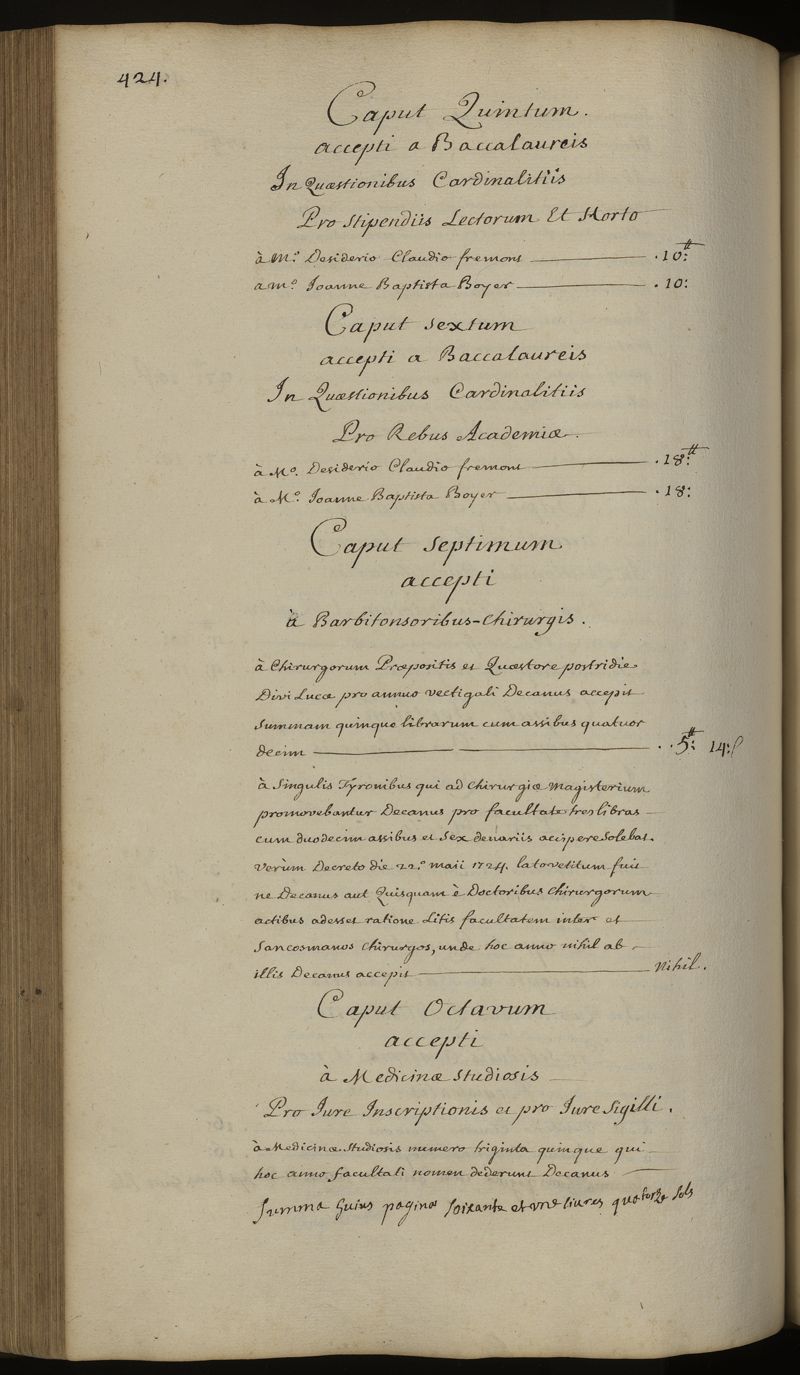 424.
Caput Quintum.
accepti a Baccalaureis
In Quæstionibus Cardinalitiis
Pro Stipendiis Lectorum Et Horto
à M.º Desiderio Claudio fremont — . 10.tt
a m.º Joanne Baptista Boyer — . 10:
Caput sextum
accepti a Baccalaureis
In Quæstionibus Cardinalitiis
Pro Rebus Academiæ.
à Mº. Desiderio Claudio fremont — . 18.tt
à M.º Joanne Baptista Boyer — . 18:
Caput septimum
accepti
à Barbitonsoribus-chirurgis.
à chirurgorum Præpositis et Quæstore postridie
Divi Lucæ pro annuo vectigali Decanus accepit
summam quinque librarum cum assibus quatuor
decim — — . . 5.tt 14:ſ
à singulis Tyronibus qui ad chirurgiæ magisterium
promovebantur Decanus pro facultate tres libras
cum duodecim assibus et sex denariis accipere solebat.
verùm Decreto die 22.º maii 1724. lato vetitum fuit
ne Decanus aut Quisquam è Doctoribus chirurgorum
actibus adesset ratione Litis facultatem inter et
sancosmanos chirurgos, unde hoc anno nihil ab
illis Decanus accepit — Nihil.
Caput Octavum
accepti
à Medicinæ studiosis
Pro Jure Inscriptionis et pro Jure Sigilli.
à Medicinæ studiosis numero triginta quinque qui
hoc anno facultati nomen dederunt Decanus
summa huius paginæ soixante et une livres quatorze sols